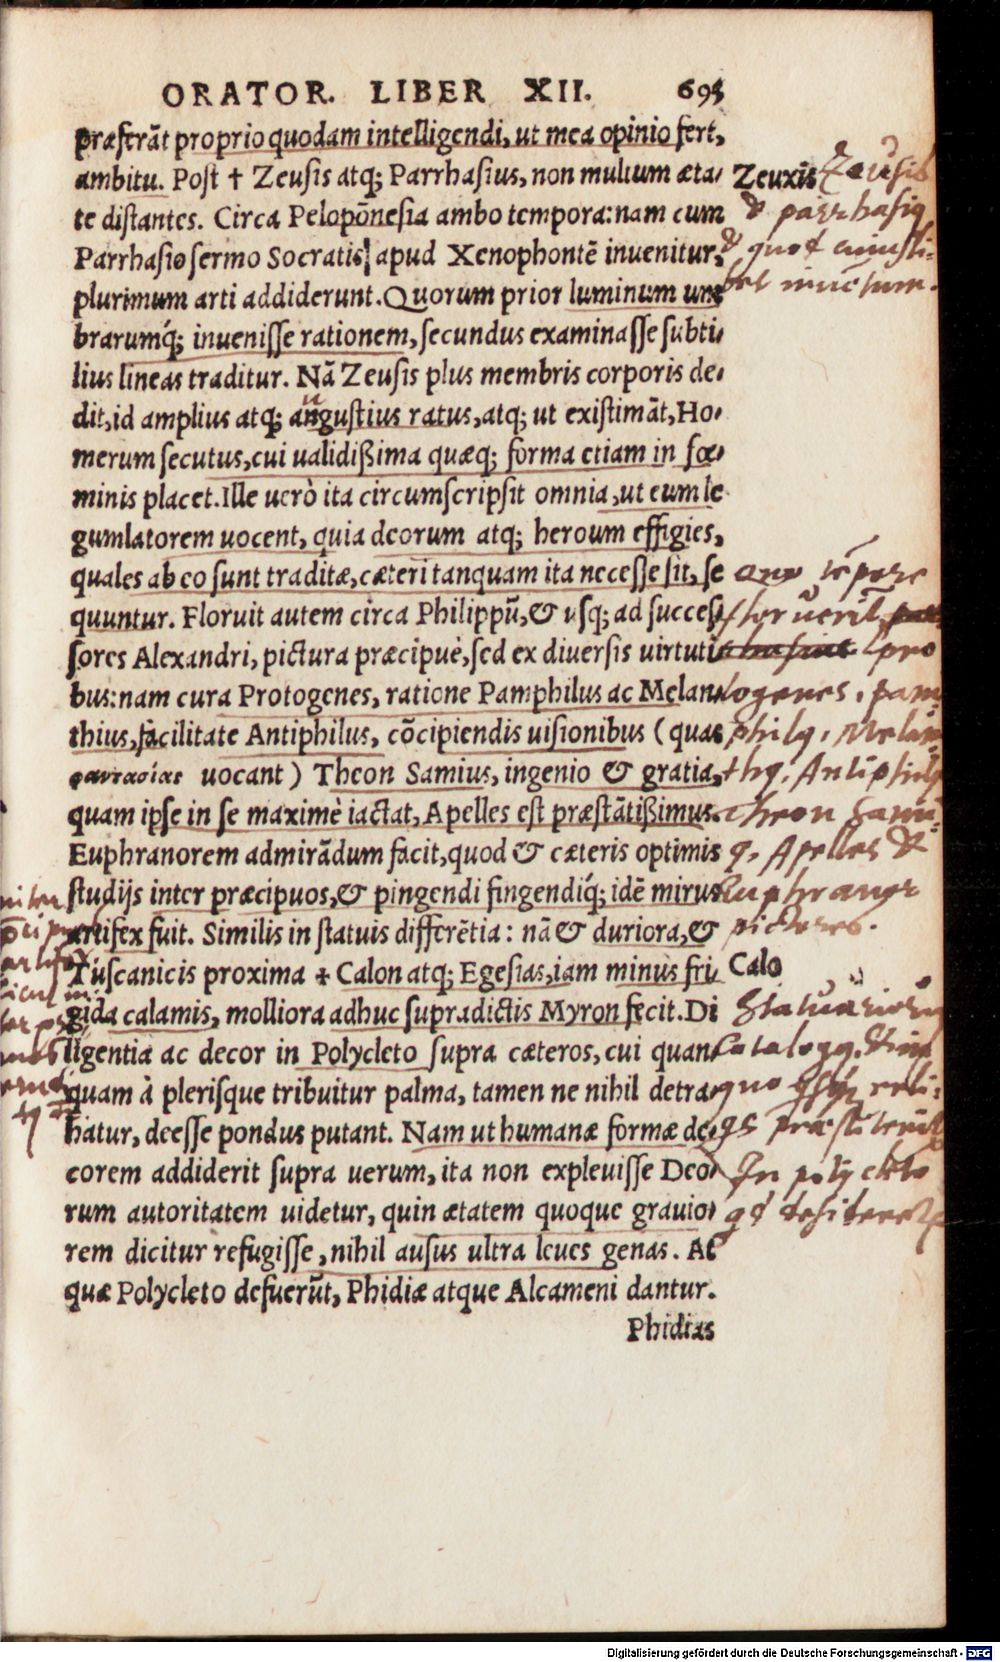 ORATOR. LIBER XII. 695
præferãt proprio quodam intelligendi, ut mea opinio fert,
ambitu. Post † Zeusis atq; Parrhasius, non multum æta-
te distantes. Circa Pelopõnesia ambo tempora: nam cum
Parrhasio sermo Socratis apud Xenophontẽ inuenitur,
plurimum arti addiderunt. Quorum prior luminum um-
brarumq́; inuenisse rationem, secundus examinasse subti-
lius lineas traditur. Nã Zeusis plus membris corporis de-
dit, id amplius atq; angustius ratus, atq; ut existimãt, Ho-
merum secutus, cui ualidißima quæq; forma etiam in fœ-
minis placet. Ille uerò ita circumscripsit omnia, ut eum le
gumlatorem uocent, quia deorum atq; heroum effigies,
quales ab eo sunt traditæ, cæteri tanquam ita necesse sit, se
quuntur. Floruit autem circa Philippũ, & usq; ad succes-
sores Alexandri, pictura præcipuè, sed ex diuersis uirtuti-
bus: nam cura Protogenes, ratione Pamphilus ac Melan-
thius, facilitate Antiphilus, cõcipiendis uisionibus (quas
φαντασίας uocant) Theon Samius, ingenio & gratia,
quam ipse in se maximè iactat, Apelles est præstãtißimus.
Euphranorem admirãdum facit, quod & cæteris optimis
studijs inter præcipuos, & pingendi fingendiq́; idẽ mirus
artifex fuit. Similis in statuis differẽtia: nã & duriora, &
Tuscanicis proxima † Calon atq; Egesias, iam minus fri-
gida calamis, molliora adhuc supradictis Myron fecit. Di
ligentia ac decor in Polycleto supra cæteros, cui quan-
quam à plerisque tribuitur palma, tamen ne nihil detra-
hatur, deesse pondus putant. Nam ut humanæ formæ de-
corem addiderit supra uerum, ita non expleuisse Deo-
rum autoritatem uidetur, quin ætatem quoque grauio-
rem dicitur refugisse, nihil ausus ultra leues genas. At
quæ Polycleto defuerũt, Phidiæ atque Alcameni dantur.
Phidias
Zeuxis
Zeusis
& parrhasiq
& quod
inuentum.
quo tẽpore
pro
togenes. pam
philq, Melan
thq, Antiphilq
Theon Sami
q, Apelles &
Euphranor
pictores.
Calo
Statuariorũ
catalogq, &
In polycleto
qd
Digitalisierung gefördert durch die Deutsche Forschungsgemeinschaft - DFG